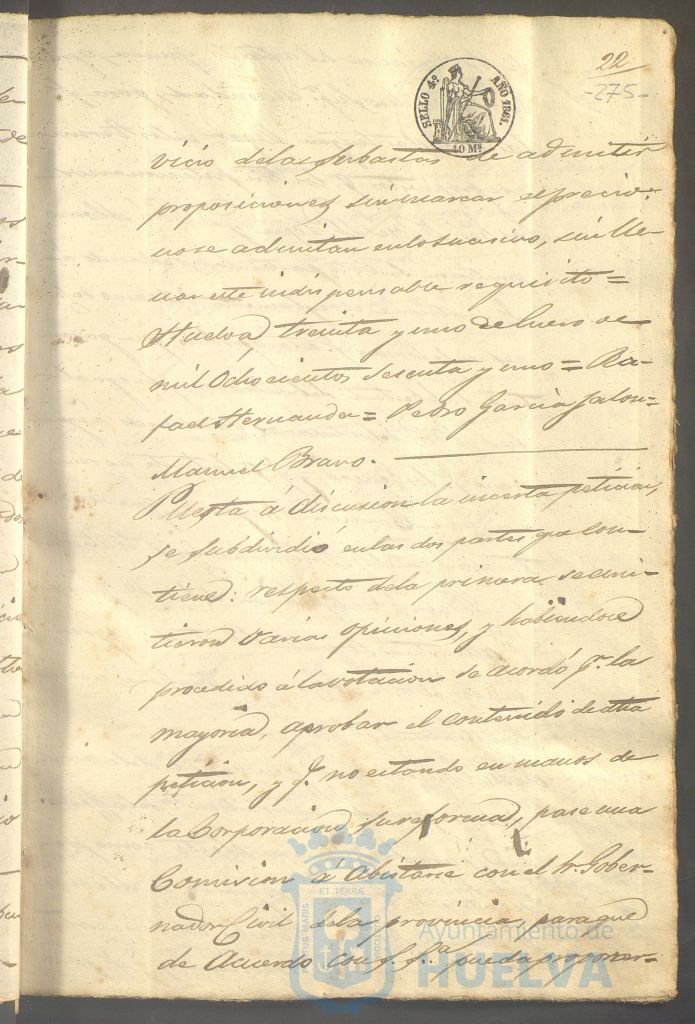 22
-275-
SELLO 4º AÑO 1861.
40 Ms
vicio delas Subastas de admitir
proposiciones sin marcar el precio:
no se admitan enlosucesivo, sin lle-
nar este indispensable requisito =
Huelva treinta y uno de Enero de
mil Ochocientos Sesenta y uno = Ra-
fael Hernandez = Pedro Garcia Jalon =
Manuel Bravo.
Puesta á discusion la incerta peticion,
se subdividió enlas dos partes que con-
tiene: respecto dela primera se emi-
tieron varias opiniones, y habiendose
procedido á la votacion se acordó pr. la
mayoria, aprobar el contenido de dha
peticion, y q. no estando en manos de
la Corporacion su reforma, pase una
Comision á abistarse con el Sr. Gober-
nador Civil dela provincia, paraque
de Acuerdo con S. Sª. pueda proponer-
ET TERRÆ
PORTUS MARIS
CUSTODIA
Ayuntamiento de
HUELVA